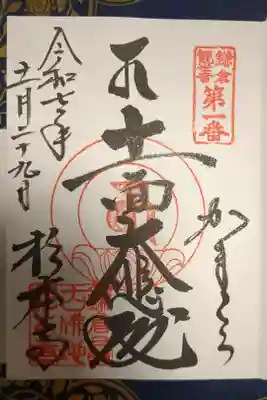 鎌倉
觀音
第一番
かまくら
十一面大悲殿
令和七年
十一月二十九日
杉本寺